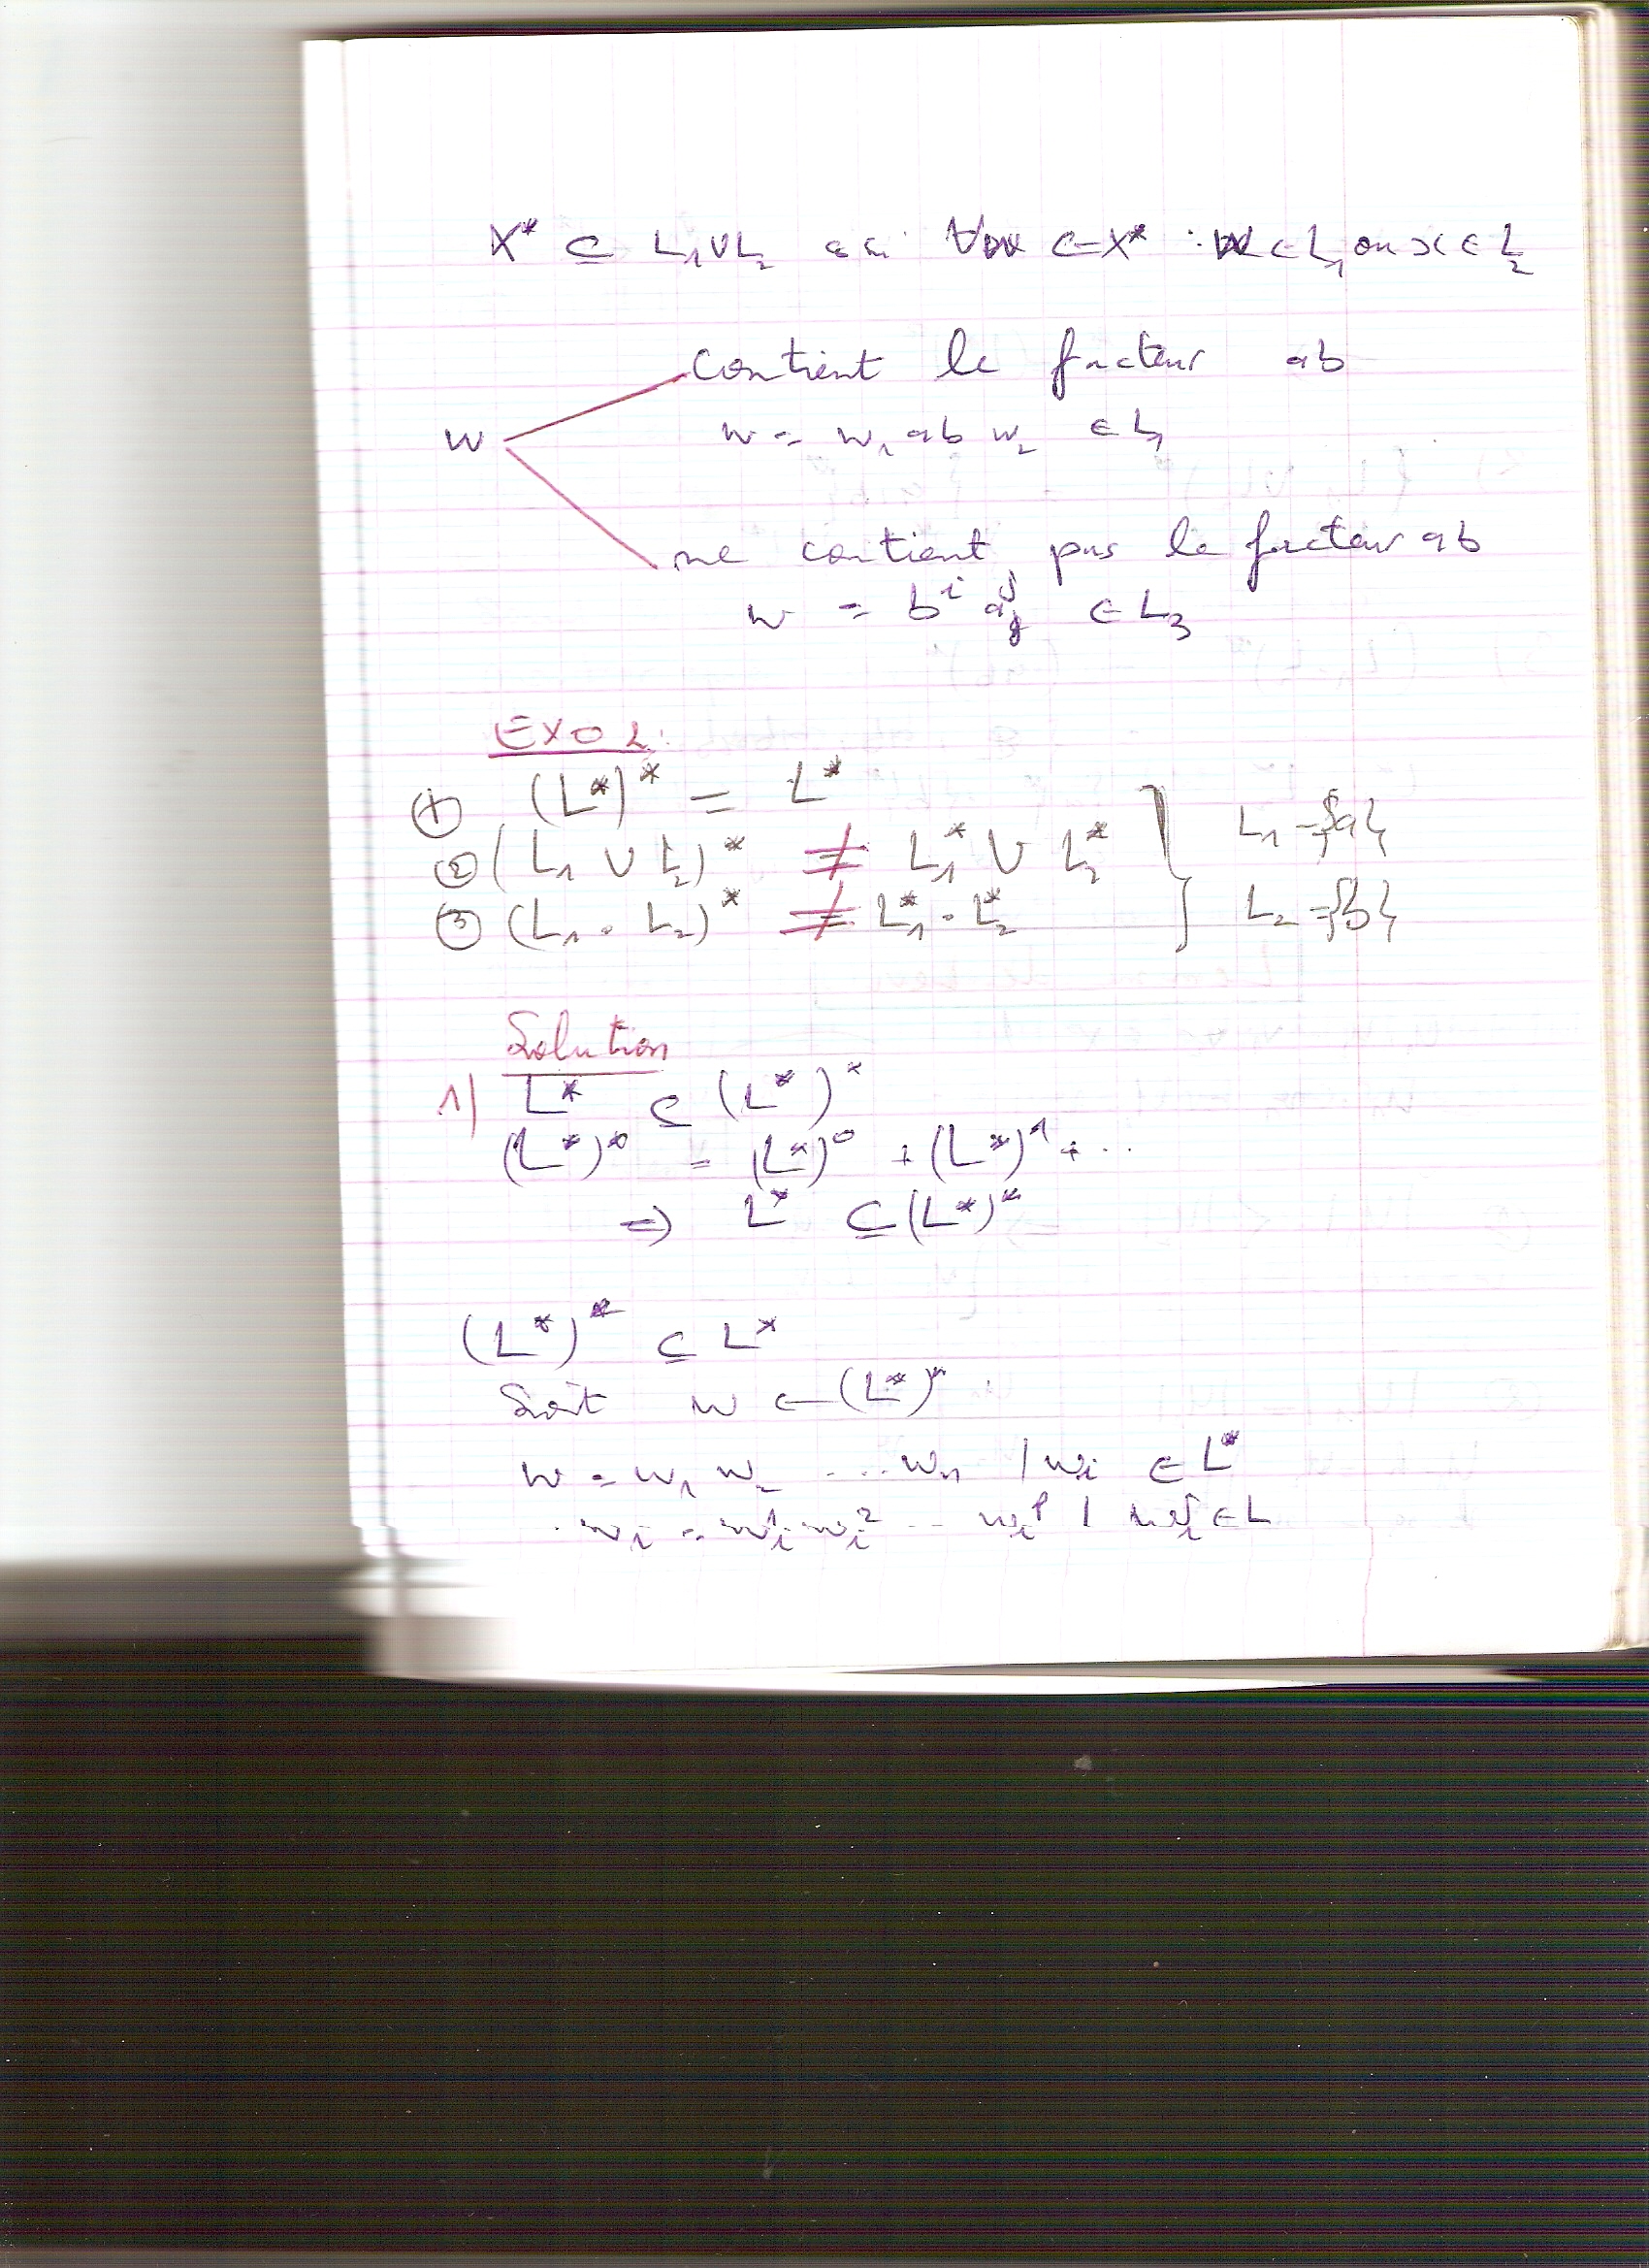 X* ⊆ L₁∪L₂ ∀w ∈ X* : w ∈ L₁ ou x ∈ L₂
Contient le facteur ab
w
w = w₁ ab w₂ ∈ L₁
ne contient pas le facteur ab
w = bⁱ aʲ ∈ L₃
EXO 2:
① (L*)* = L*
② (L₁ ∪ L₂)* ≠ L₁* ∪ L₂* L₁ = {a}
③ (L₁ . L₂)* ≠ L₁* . L₂* L₂ = {b}
Solution
1) L* ⊆ (L*)*
(L*)* = (L*)⁰ + (L*)¹ + ...
⇒ L* ⊆ (L*)*
(L*)* ⊆ L*
Soit w ∈ (L*)*
w = w₁ w₂ .... wₙ / wᵢ ∈ L*
wᵢ = wᵢ¹ wᵢ² ... wᵢᵖ / wᵢʲ ∈ L